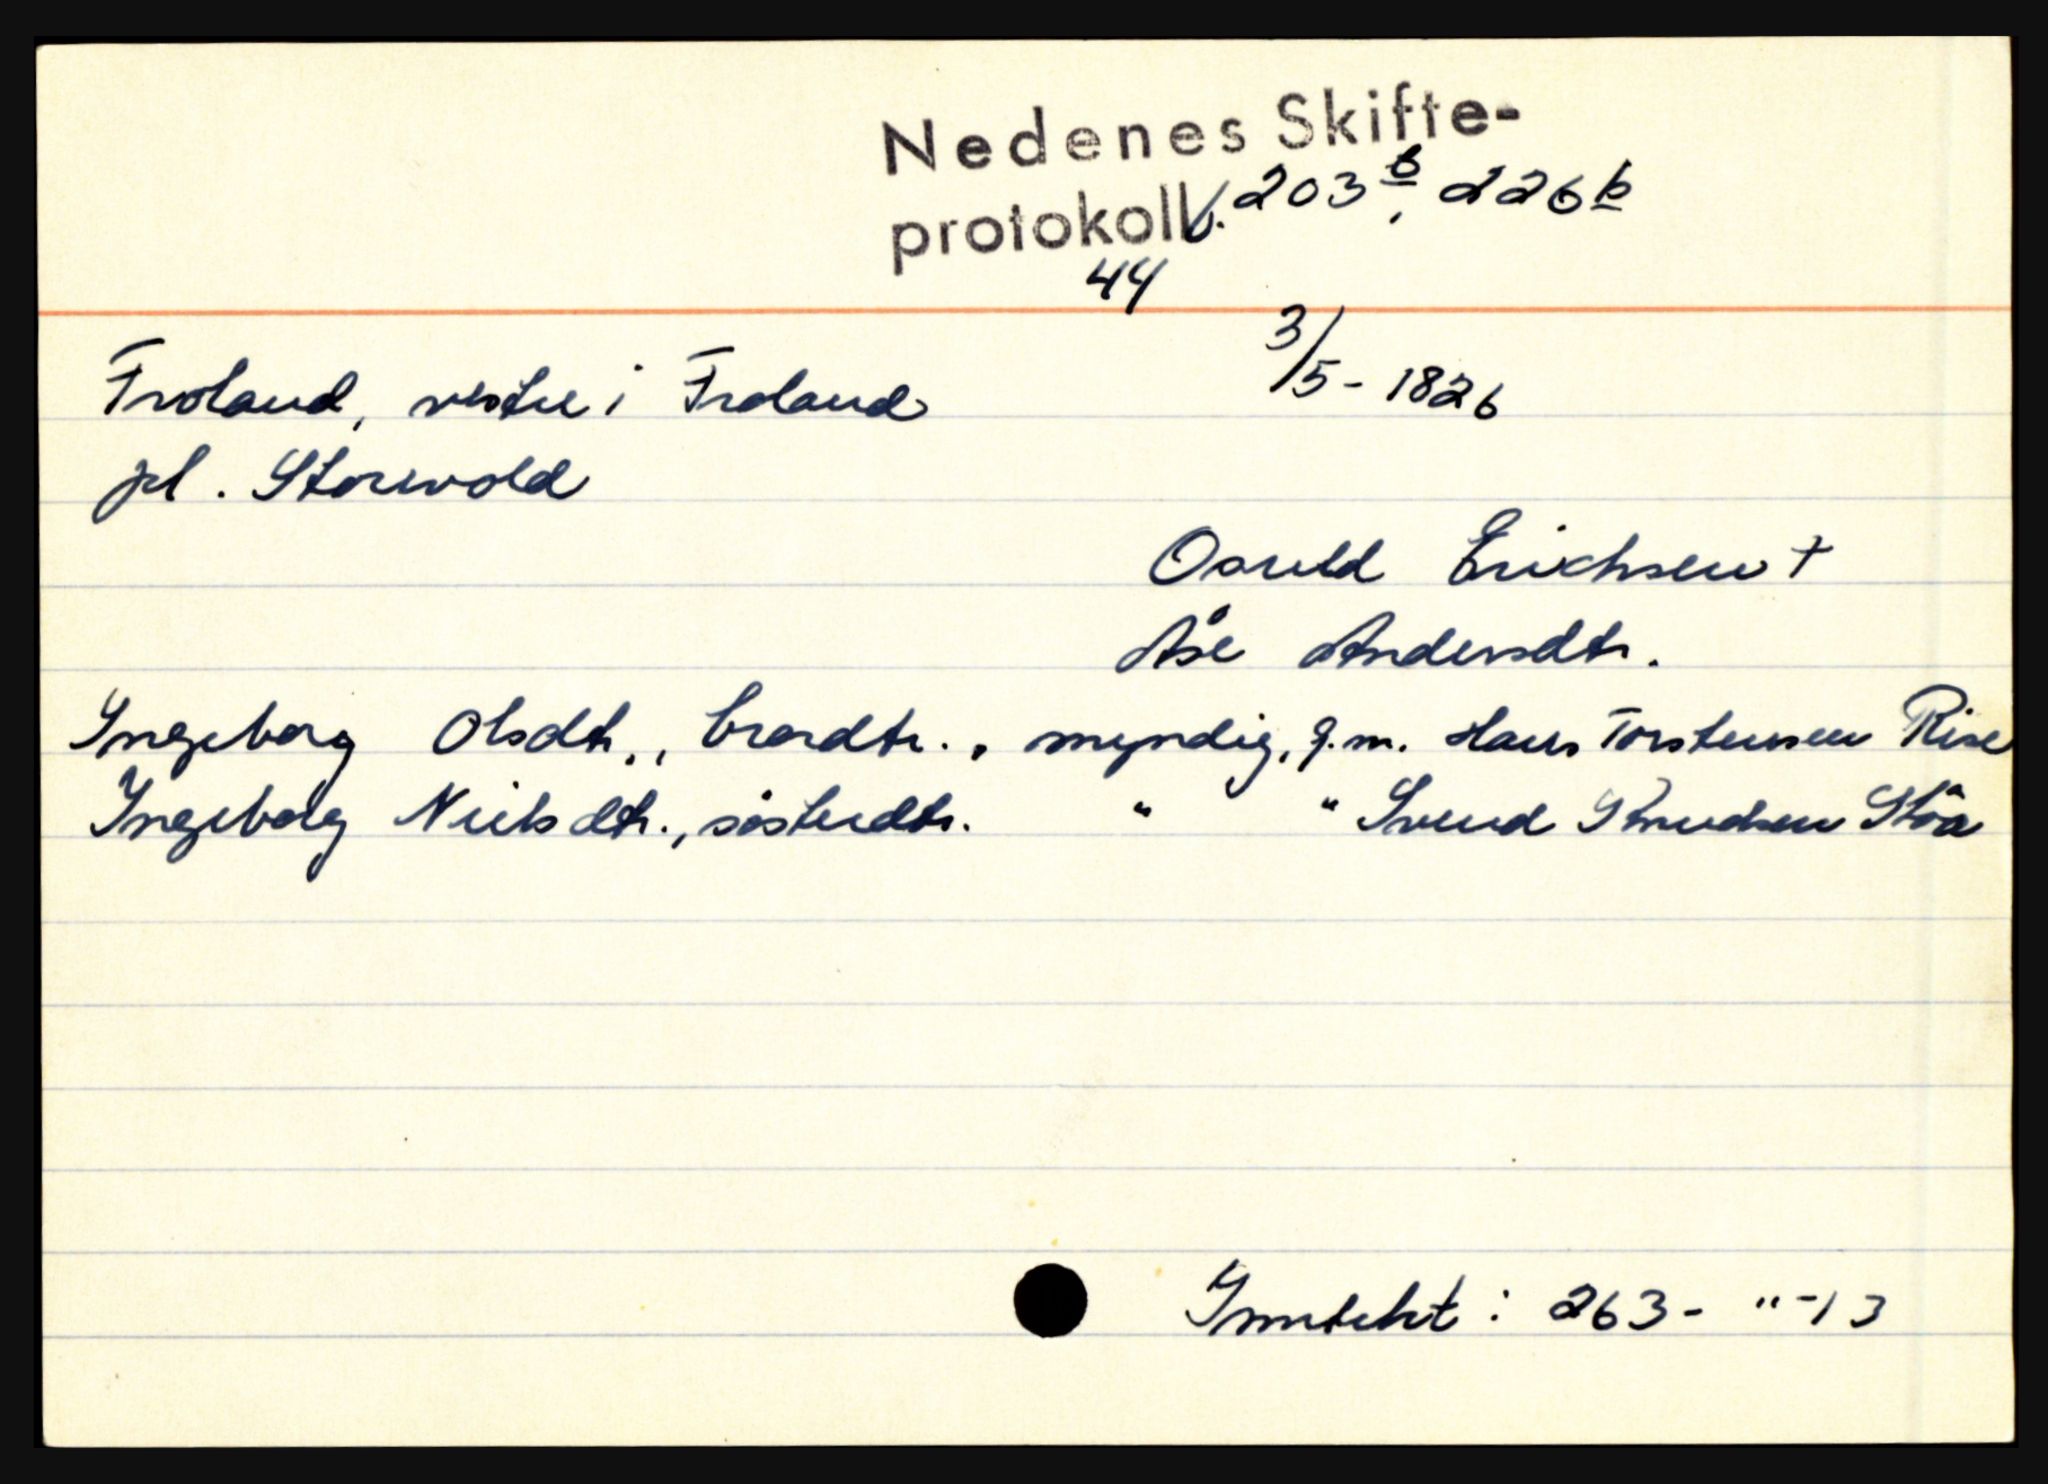 Nedenes Skifte-
protokoll f. 203 b, 226 b
44
3/5 - 1826
Froland, vestre i Froland
pl. Storvold
Osuld Erichsen +
Åse Andersdtr.
Ingeborg Olsdtr., brordtr., myndig, g.m. Hans Torstensen Rise
Ingeborg Nielsdtr., søsterdtr. " " Svend Knudsen Støa
Inntekt : 263 - " - 13